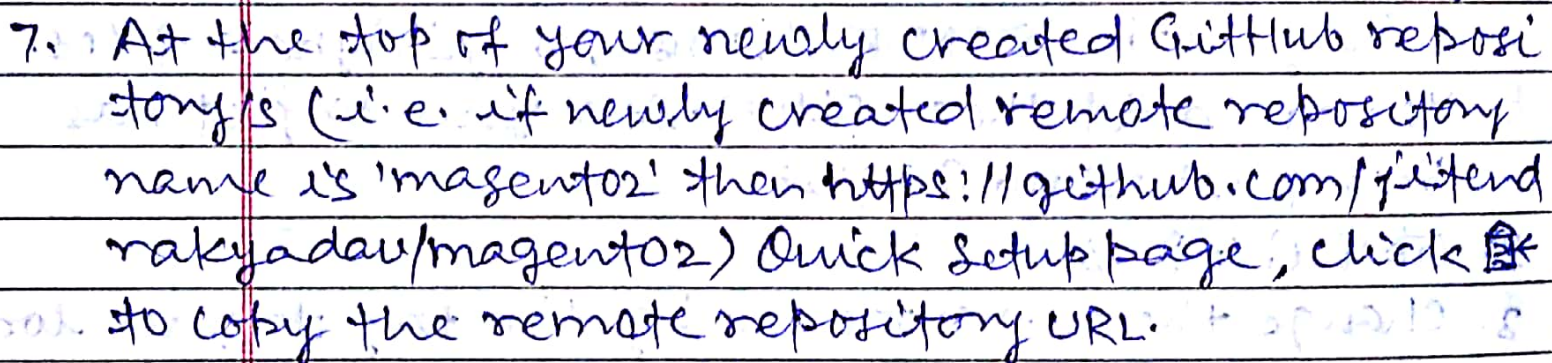 7. At the top of your newly created GitHub reposi
tory's (i.e. if newly created remote repository
name is 'magento2' then https://github.com/jitend
rakyadav/magento2) Quick Setup page, click
to copy the remote repository URL.